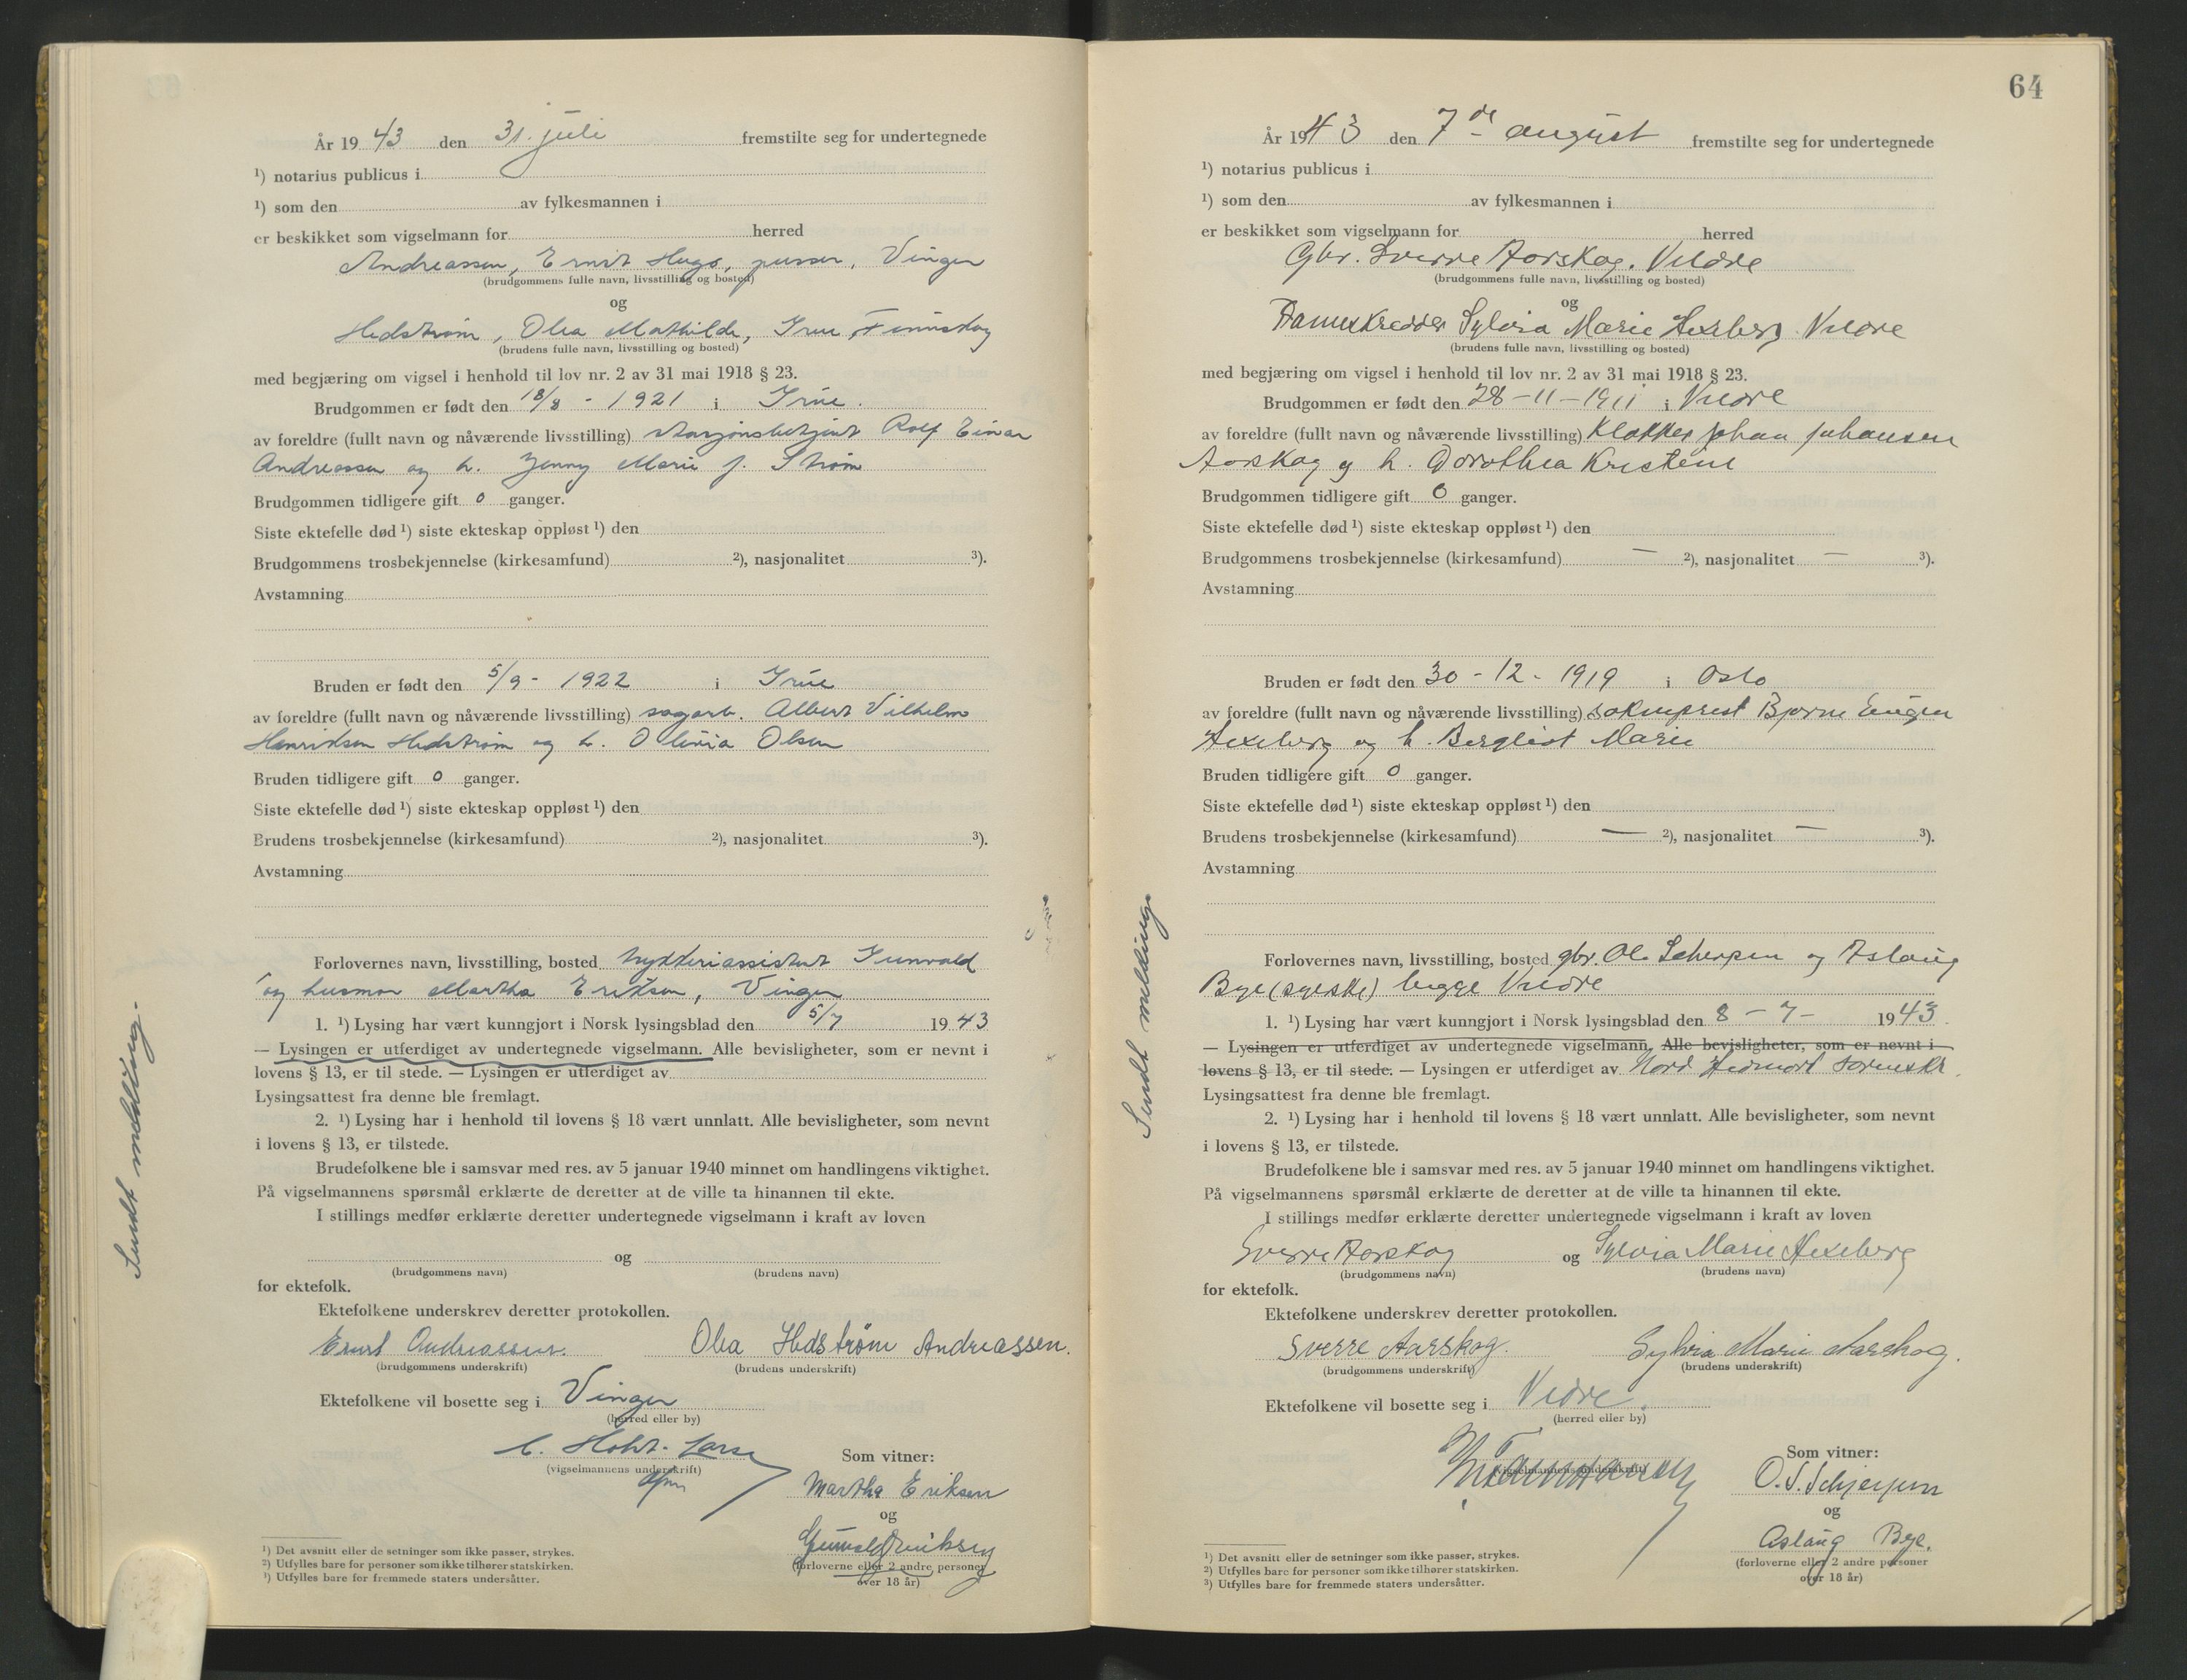 År 1943 den 31. juli fremstilte seg for undertegnede
¹) notarius publicus i
¹) som den av fylkesmannen i
er beskikket som vigselmann for herred
Andreassen, Ernst Hugo, pusser, Vinger
(brudgommens fulle navn, livsstilling og bosted)
og
Hedstrøm, Olea Mathilde, Irue, Finnskog
(brudens fulle navn, livsstilling og bosted)
med begjæring om vigsel i henhold til lov nr. 2 av 31 mai 1918 § 23.
Brudgommen er født den 18/8 - 1921 i
av foreldre (fullt navn og nåværende livsstilling) stasjonsbetjent Rolf Einar
Andreassen og h. Jenny Marie f. Strøm
Brudgommen tidligere gift 0 ganger.
Siste ektefelle død ¹) siste ekteskap oppløst ¹) den
Brudgommens trosbekjennelse (kirkesamfund) ²), nasjonalitet ³).
Avstamning
Bruden er født den 5/9 - 1922 i
av foreldre (fullt navn og nåværende livsstilling) sagarb. Albert Vilhelm
Henriksen Hedstrøm og h. Olivia Olsen
Bruden tidligere gift 0 ganger.
Siste ektefelle død ¹) siste ekteskap oppløst ¹) den
Brudens trosbekjennelse (kirkesamfund) ²), nasjonalitet ³).
Avstamning
Forlovernes navn, livsstilling, bosted hytteriassistent Gunvald
og husmor Martha Eriksen, Vinger
1. ¹) Lysing har vært kunngjort i Norsk lysingsblad den 5/7 1943
— Lysingen er utferdiget av undertegnede vigselmann. Alle bevisligheter, som er nevnt i
lovens § 13, er til stede. — Lysingen er utferdiget av
Lysingsattest fra denne ble fremlagt.
2. ¹) Lysing har i henhold til lovens § 18 vært unnlatt. Alle bevisligheter, som nevnt
i lovens § 13, er tilstede.
Brudefolkene ble i samsvar med res. av 5 januar 1940 minnet om handlingens viktighet.
På vigselmannens spørsmål erklærte de deretter at de ville ta hinannen til ekte.
I stillings medfør erklærte deretter undertegnede vigselmann i kraft av loven
og
(brudgommens navn) (brudens navn)
for ektefolk.
Ektefolkene underskrev deretter protokollen.
Ernst Andreassen. Olea Hedstrøm Andreassen.
(brudgommens underskrift) (brudens underskrift)
Ektefolkene vil bosette seg i Vinger
(herred eller by)
(vigselmannens underskrift)
Som vitner:
Martha Eriksen
og
Gunvald Eriksen
(forloverne eller 2 andre personer
over 18 år)
¹) Det avsnitt eller de setninger som ikke passer, strykes.
²) Utfylles bare for personer som ikke tilhører statskirken.
³) Utfylles bare for fremmede staters undersåtter.
Sendt melding.
64
År 1943 den 7de august fremstilte seg for undertegnede
¹) notarius publicus i
¹) som den av fylkesmannen i
er beskikket som vigselmann for herred
Gbr. Sverre Aarskog. Veldre
(brudgommens fulle navn, livsstilling og bosted)
og
Sylvia Marie Hexeberg. Veldre
(brudens fulle navn, livsstilling og bosted)
med begjæring om vigsel i henhold til lov nr. 2 av 31 mai 1918 § 23.
Brudgommen er født den 28 - 11 - 1911 i Veldre
av foreldre (fullt navn og nåværende livsstilling) Klokker Johan Johansen
Aarskog og h. Dorothea Kristine
Brudgommen tidligere gift 0 ganger.
Siste ektefelle død ¹) siste ekteskap oppløst ¹) den
Brudgommens trosbekjennelse (kirkesamfund) — ²), nasjonalitet — ³).
Avstamning
Bruden er født den 30 - 12 - 1919 i Oslo
av foreldre (fullt navn og nåværende livsstilling) sokneprest Bjarne Eugen
Hexeberg og h. Bergliot Marie
Bruden tidligere gift 0 ganger.
Siste ektefelle død ¹) siste ekteskap oppløst ¹) den
Brudens trosbekjennelse (kirkesamfund) — ²), nasjonalitet — ³).
Avstamning
Forlovernes navn, livsstilling, bosted gbr. Ole Scherpen og Aslaug
Bye (syerske) begge Veldre
1. ¹) Lysing har vært kunngjort i Norsk lysingsblad den 8 - 7 - 1943.
— Lysingen er utferdiget av undertegnede vigselmann. Alle bevisligheter, som er nevnt i
lovens § 13, er til stede. — Lysingen er utferdiget av Nord Hedmark sorenskr.
Lysingsattest fra denne ble fremlagt.
2. ¹) Lysing har i henhold til lovens § 18 vært unnlatt. Alle bevisligheter, som nevnt
i lovens § 13, er tilstede.
Brudefolkene ble i samsvar med res. av 5 januar 1940 minnet om handlingens viktighet.
På vigselmannens spørsmål erklærte de deretter at de ville ta hinannen til ekte.
I stillings medfør erklærte deretter undertegnede vigselmann i kraft av loven
Sverre Aarskog og Sylvia Marie Hexeberg
(brudgommens navn) (brudens navn)
for ektefolk.
Ektefolkene underskrev deretter protokollen.
Sverre Aarskog. Sylvia Marie Aarskog.
(brudgommens underskrift) (brudens underskrift)
Ektefolkene vil bosette seg i Veldre.
(herred eller by)
(vigselmannens underskrift)
Som vitner:
O. S. Schjerpen
og
Aslaug Bye.
(forloverne eller 2 andre personer
over 18 år)
¹) Det avsnitt eller de setninger som ikke passer, strykes.
²) Utfylles bare for personer som ikke tilhører statskirken.
³) Utfylles bare for fremmede staters undersåtter.
Sendt melding.